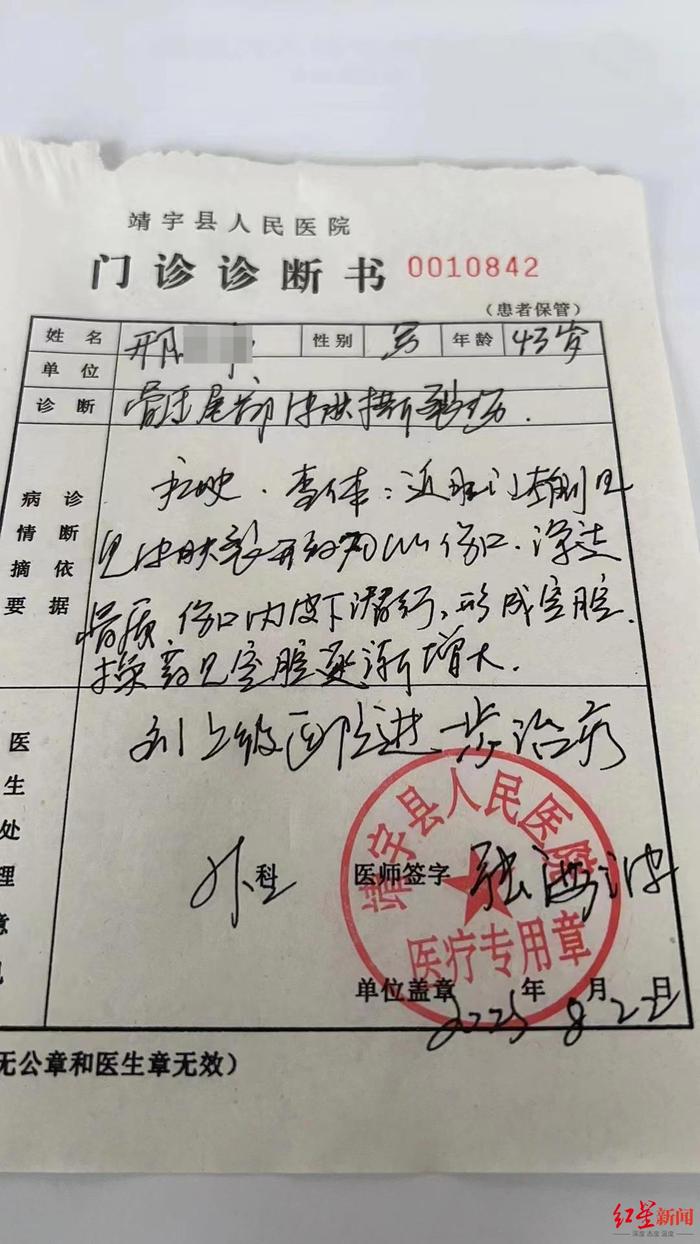 靖宇县人民医院
门诊诊断书 0010842
（患者保管）
姓名 邢 性别 男 年龄 43岁
单位
诊断 骶尾部皮肤挫裂伤.
病情摘要 诊断依据
查体：近肛门
见皮肤裂开 伤口.深达
骨质.伤口内皮下潜行,形成空腔.
换药见空腔逐渐增大.
医生处理意见
到上级医院进一步治疗
外科 医师签字 张海波
靖宇县人民医院
医疗专用章
单位盖章 2025年8月22日
无公章和医生章无效）
红星新闻
深度 态度 温度